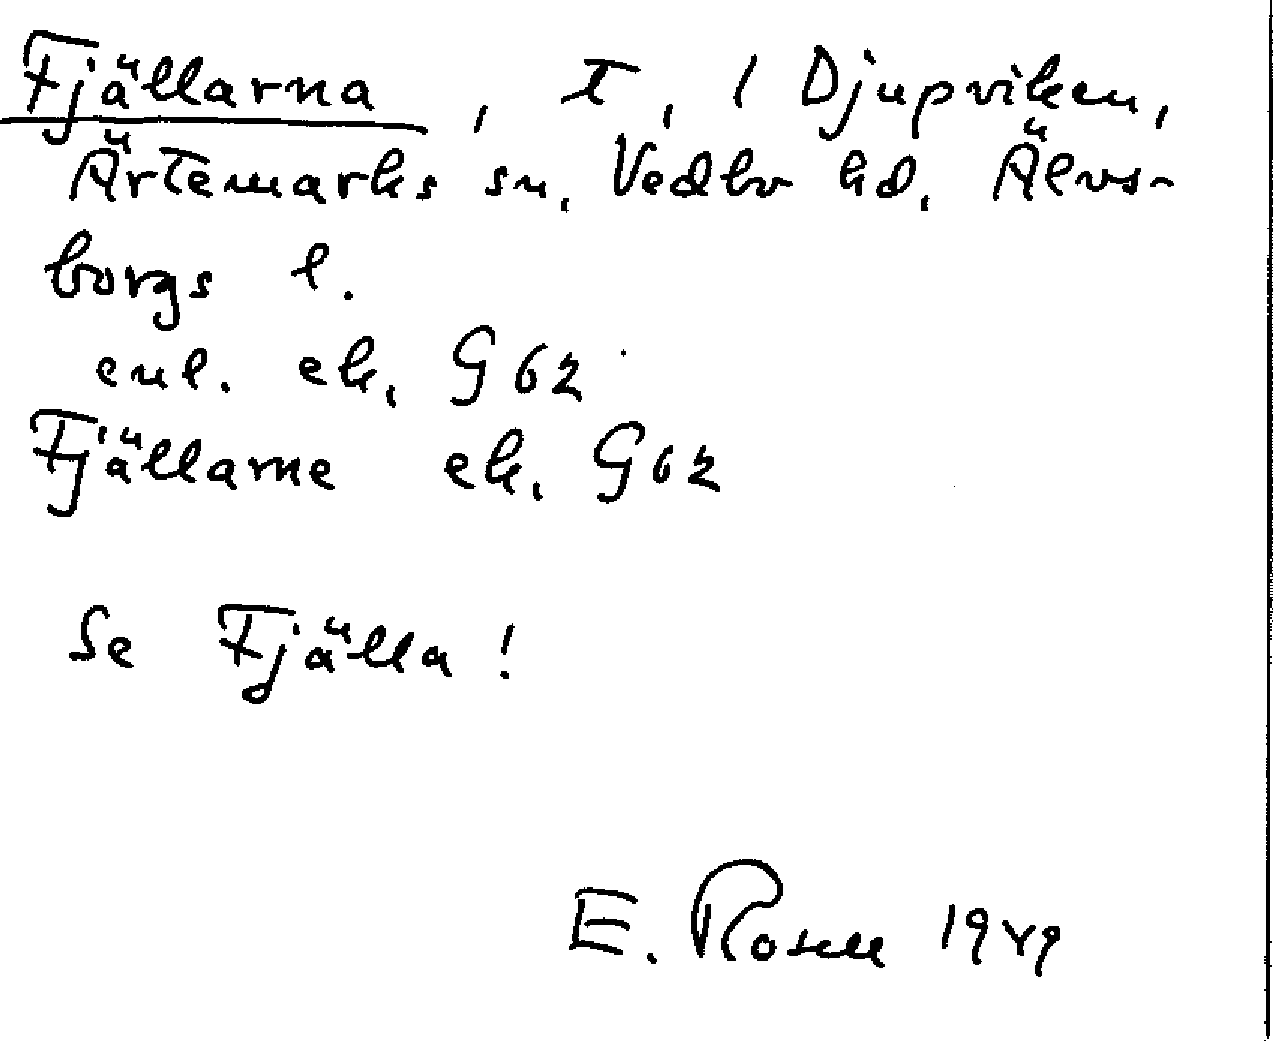 Fjällarna, t, i Djupviken,
Ärtemarks sn. Vedbo hd. Älvs-
borgs l.
enl. ek. G 62
Fjällarne ek. G 62
Se Fjälla!
E. Rosell 1949